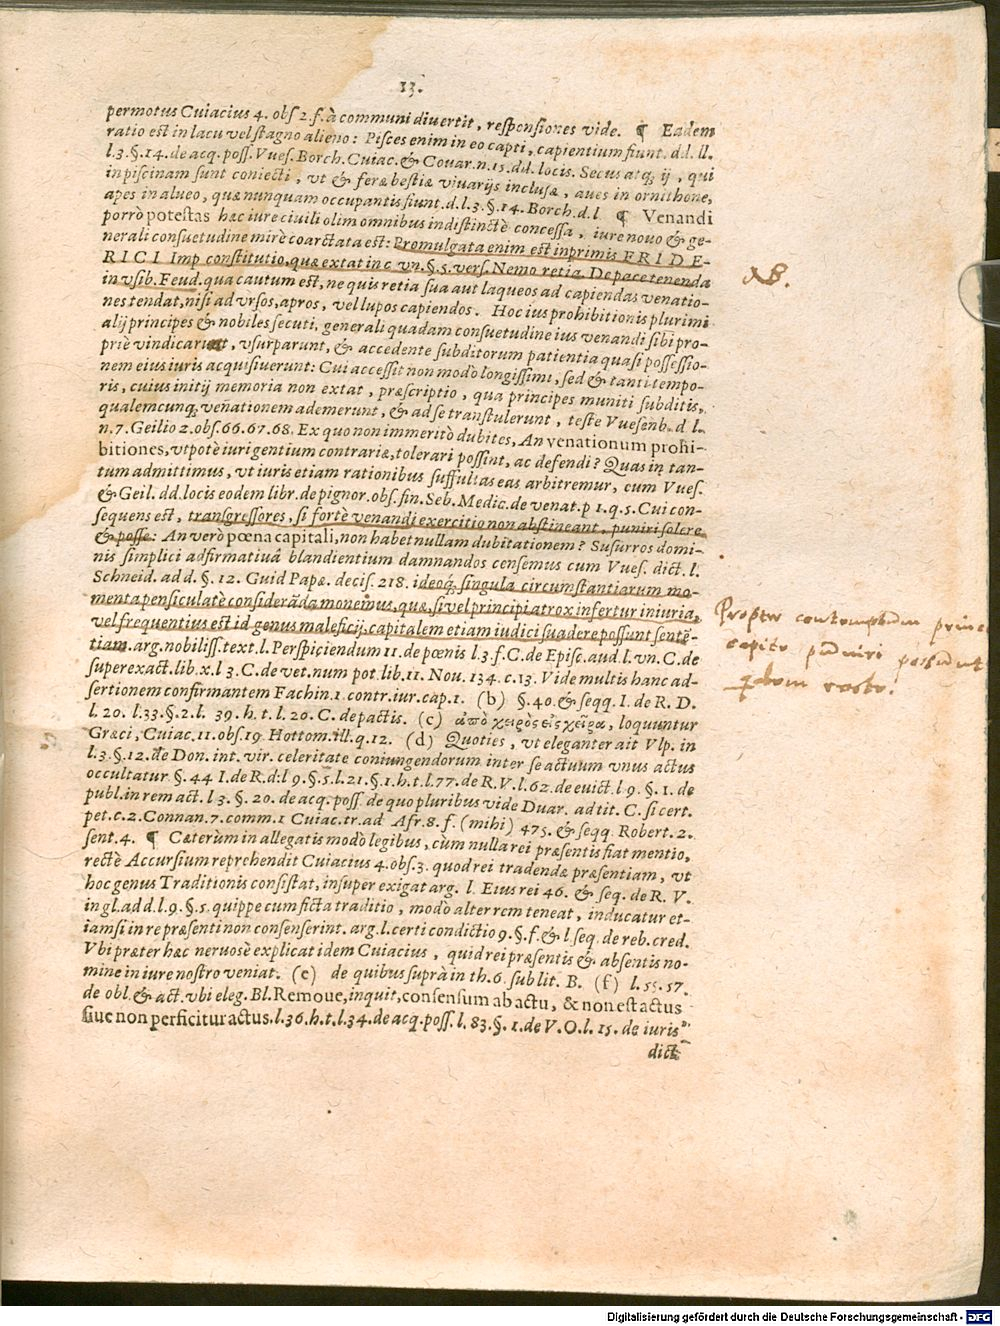 13.
permotus Cuiacius 4. obſ 2. f. à communi divertit, reſponſiones vide. ¶ Eadem
ratio est in lacu vel stagno alieno: Piſces enim in eo capti, capientium fiunt. dd. ll.
l. 3. §. 14. de acq. poſſ. Vueſ. Borch. Cuiac. & Couar. n. 15. dd. locis. Secus atq; ij, qui
in piſcinam ſunt coniecti, vt & feræ bestiæ viuarijs incluſæ, aues in ornithone,
apes in alueo, quæ nunquam occupantis fiunt. d. l. 3. §. 14. Borch. d. l ¶ Venandi
porrò potestas hæc iure ciuili olim omnibus indistinctè conceſſa, iure nouo & ge-
nerali conſuetudine mirè coarctata est: Promulgata enim est inprimis FRIDE-
RICI Imp constitutio, quæ extat in c vn. §. 5. verſ. Nemo retia. De pace tenenda
in vſib. Feud. qua cautum est, ne quis retia ſua aut laqueos ad capiendas venatio-
nes tendat, niſi ad vrſos, apros, vel lupos capiendos. Hoc ius prohibitionis plurimi
alij principes & nobiles ſecuti, generali quadam conſuetudine ius venandi ſibi pro-
priè vindicarunt, vſurparunt, & accedente ſubditorum patientia quaſi poſſeſſio-
nem eius iuris acquiſiuerunt: Cui acceſſit non modò longiſſimi, ſed & tanti tempo-
ris, cuius initij memoria non extat, præſcriptio, qua principes muniti ſubditis,
qualemcunq; venationem ademerunt, & ad ſe transtulerunt, teste Vueſenb. d l.
n. 7. Geilio 2. obſ. 66. 67. 68. Ex quo non immeritò dubites, An venationum prohi-
bitiones, vtpotè iuri gentium contrariæ, tolerari poſſint, ac defendi? Quas in tan-
tum admittimus, vt iuris etiam rationibus ſuffultas eas arbitremur, cum Vueſ.
& Geil. dd. locis eodem libr. de pignor. obſ. fin. Seb. Medic. de venat. p 1. q. 5. Cui con-
ſequens est, transgreſſores, ſi fortè venandi exercitio non abstineant, puniri ſolere
& poſſe: An verò pœna capitali, non habet nullam dubitationem? Suſurros domi-
nis ſimplici adfirmatiuâ blandientium damnandos cenſemus cum Vueſ. dict. l.
Schneid. ad d. §. 12. Guid Papæ. deciſ. 218. ideoq; ſingula circumstantiarum mo-
menta penſiculatè conſiderāda monemus, quæ, ſi vel principi atrox infertur iniuria,
vel frequentius est id genus maleficij, capitalem etiam iudici ſuadere poſſunt ſentē-
tiam. arg. nobiliſſ. text. l. Perſpiciendum 11. de pœnis l. 3. f. C. de Epiſc. aud. l. vn. C. de
ſuperexact. lib. x. l 3. C. de vet. num pot. lib. 11. Nou. 134. c. 13. Vide multis hanc ad-
ſertionem confirmantem Fachin. 1. contr. iur. cap. 1. (b) §. 40. & ſeqq. I. de R. D.
l. 20. l. 33. §. 2. l. 39. h. t. l. 20. C. de pactis. (c) ἀπὸ χειρὸς εἰς χεῖρα, loquuntur
Græci, Cuiac. 11. obſ. 19. Hottom. ill. q. 12. (d) Quoties, vt eleganter ait Vlp. in
l. 3. §. 12. de Don. int. vir. celeritate coniungendorum inter ſe actuum vnus actus
occultatur. §. 44 I. de R. d: l 9. §. 5. l. 21. §. 1. h. t. l. 77. de R. V. l. 62. de euict. l 9. §. 1. de
publ. in rem act. l 3. §. 20. de acq. poſſ. de quo pluribus vide Duar. ad tit. C. ſi cert.
pet. c. 2. Connan. 7. comm. 1 Cuiac. tr. ad Afr. 8. f. (mihi) 475. & ſeqq. Robert. 2.
ſent. 4. ¶ Cæterùm in allegatis modò legibus, cum nulla rei præſentis fiat mentio,
rectè Accurſium reprehendit Cuiacius 4. obſ. 3. quod rei tradendæ præſentiam, vt
hoc genus Traditionis conſistat, inſuper exigat arg. l. Eius rei 46. & ſeq. de R. V.
in gl. ad d. l. 9. §. 5. quippe cum ficta traditio, modò alter rem teneat, inducatur et-
iamſi in re præſenti non conſenſerint. arg. l. certi condictio 9. §. f. & l. ſeq. de reb. cred.
Vbi præter hæc neruosè explicat idem Cuiacius, quid rei præſentis & abſentis no-
mine in iure nostro veniat. (e) de quibus ſuprà in th. 6. ſub lit. B. (f) l. 55. 57.
de obl. & act. vbi eleg. Bl. Remoue, inquit, conſenſum ab actu, & non est actus
ſiue non perficitur actus. l. 36. h. t. l. 34. de acq. poſſ. l. 83. §. 1. de V. O. l. 15. de iuris
dict:
NB.
Propter contemptum
capite puniri possunt
Digitalisierung gefördert durch die Deutsche Forschungsgemeinschaft - DFG